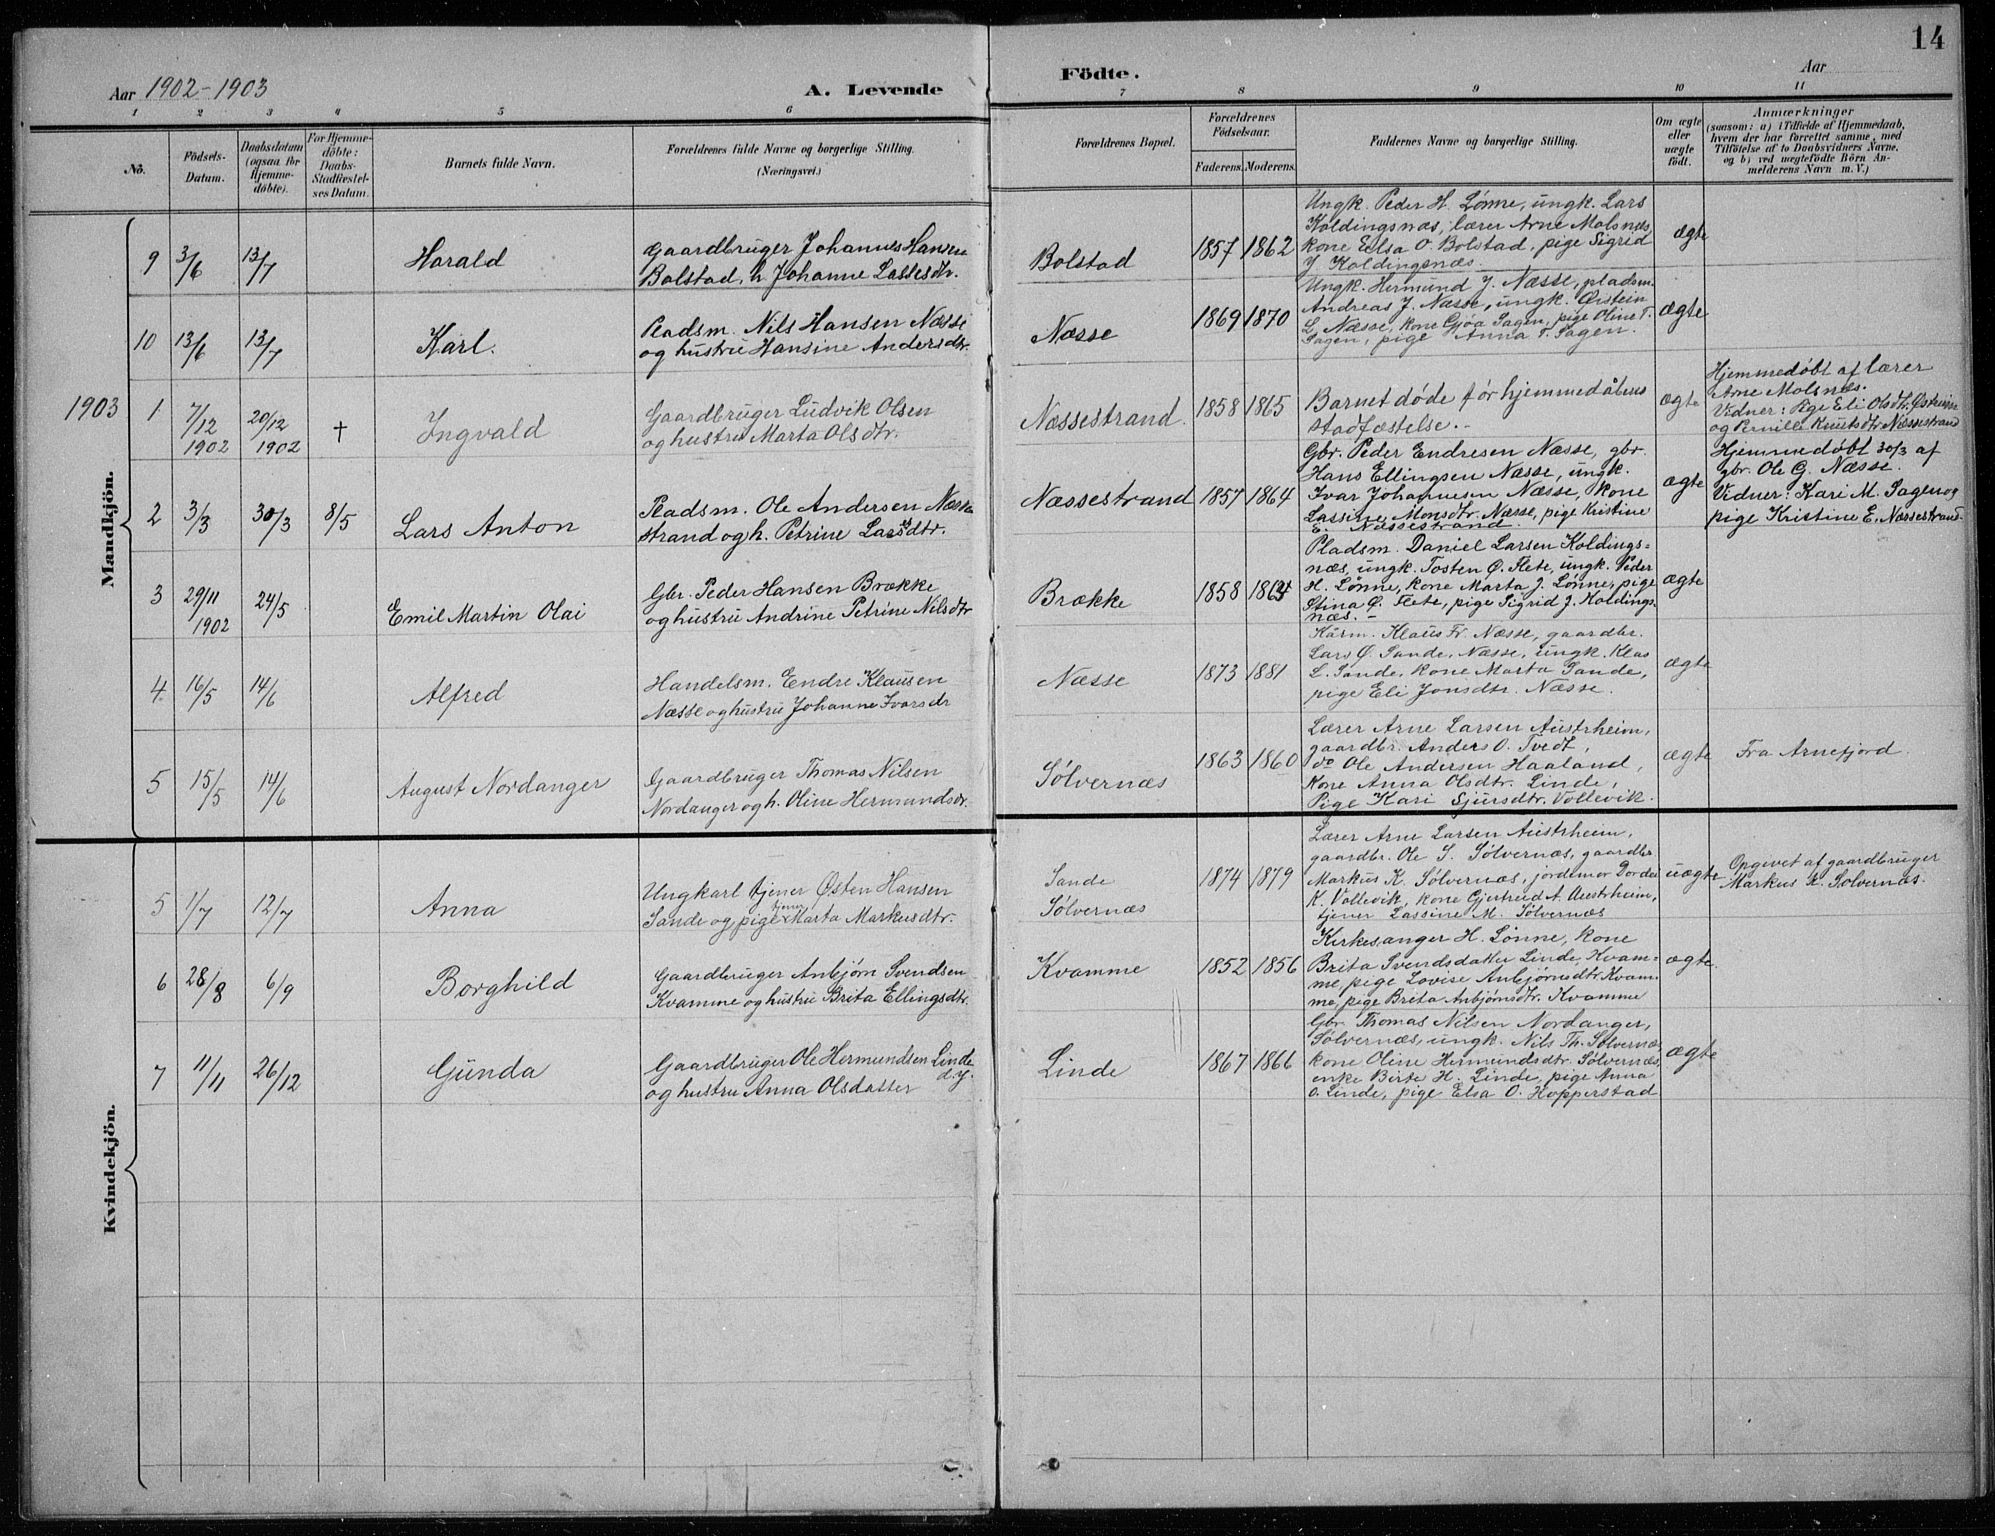 14
Aar 1902-1903
A. Levende
Födte.
Aar
1 2 3 4 5 6 7 8 9 10 11
No.
Födsels-
Datum.
Daabsdatum
(ogsaa för
Hjemme-
döbte).
For Hjemme-
döbte:
Daabs-
Stadfæstel-
ses Datum.
Barnets fulde Navn.
Forældrenes fulde Navne og borgerlige Stilling.
(Næringsvei.)
Forældrenes Bopæl.
Forældrenes
Födselsaar.
Faderens. Moderens.
Faddernes Navne og borgerlige Stilling.
Om ægte
eller
uægte
födt.
Anmærkninger
(saasom: a) i Tilfælde af Hjemmedaab,
hvem der har forrettet samme, med
Tilföielse af to Daabsvidners Navne,
og b) ved uegtefödte Börn An-
melderens Navn m. V.)
Mandkjön.
9 3/6 13/7 Harald
Gaardbruger Johannes Hansen
Bolstad, h. Johanne Lassesdtr.
Bolstad 1857 1862
Ungk. Peder H. Lønne, ungk. Lars
Koldingsnæs, lærer Arne Molsnæs,
kone Eilsa O. Bolstad, pige Sigrid
J. Koldingsnæs.
ægte
10 13/6 13/7 Karl.
Pladsm. Nils Hansen Næsse
og hustru Hansine Andersdtr.
Næsse 1869 1870
Ungk. Hermund J. Næsse, pladsm.
Andreas J. Næsse, ungk. Ørstein
L. Næsse, kone Gjøa Sagen, pige Oline T.
Sagen, pige Anna T. Sagen.
ægte
1903 1 7/12 1902 20/12 1902 † Ingvald
Gaardbruger Ludvik Olsen
og hustru Marta Olsdtr.
Næssestrand. 1858 1865
Barnet døde før hjemmedåbens
stadfæstelse.
ægte
Hjemmedøbt af lærer
Arne Molsnæs.
Vidner: Pige Eli Olsdtr. Østreim
og Pernille Knutsdtr. Næssestrand
2 3/3 30/3 8/5 Lars Anton
Pladsm. Ole Andersen Næsse
strand og h. Petrine Larsdtr.
Næssestrand 1857 1864
Gbr. Peder Endresen Næsse, gbr.
Hans Ellingsen Næsse, ungk.
Ivar Johannesen Næsse, kone
Lassine Monsdtr. Næsse, pige Kristine
E. Næssestrand.
ægte
Hjemmedøbt 30/3 af
gbr. Ole G. Næsse.
Vidner: Kari M. Sagen og
pige Kristine E. Næssestrand.
3 29/11 1902 24/5 Emil Martin Olai
Gbr. Peder Hansen Brække
og hustru Andrine Petrine Nilsdtr
Brække 1858 1864
Pladsm. Daniel Larsen Koldings=
næs, ungk. Tosten Ø. Flete, ungk. Peder
H. Lønne, kone Marta J. Lønne, pige
Stina Ø. Flete, pige Sigrid J. Koldings
næs. -
ægte
4 16/5 14/6 Alfred
Handelsm. Endre Klausen
Næsse og hustru Johanne Ivarsdr
Næsse 1873 1881
Kårm. Klaus Fr. Næsse, gaardbr.
Lars Ø. Sande, Næsse, ungk. Klas
L. Sande, kone Marta Sande,
pige Eli Jonsdtr. Næsse.
ægte
5 15/5 14/6 August Nordanger
Gaardbruger Thomas Nilsen
Nordanger og h. Oline Hermundsdtr.
Sølvernæs 1863 1860
Lærer Arne Larsen Austrheim,
gaardbr. Anders O. Tvedt,
do Ole Andersen Haaland,
Kone Anna Olsdtr. Linde,
Pige Kari Sjursdtr. Vollevik.
ægte
Fra Arnefjord.
Kvindekjön.
5 1/7 12/7 Anna
Ungkarl tjener Østen Hansen
Sande og pige tjener Marta Markusdtr.
Sande
Sølvernæs
1874 1879
Lærer Arne Larsen Austrheim,
gaardbr. Ole S. Sølvernæs, gaardbr
Markus K. Sølvernæs, jordemor Dordei
K. Vollevik, kone Gjertrud A. Austrheim,
tjener Lassine M. Sølvernæs
uægte
Opgevet af gaardbruger
Markus K. Sølvernæs.
6 28/8 6/9 Borghild
Gaardbruger Anbjørn Svendsen
Kvamme og hustru Brita Ellingsdtr.
Kvamme 1852 1856
Kirkesanger H. Lønne, kone
Brita Svendsdatter Linde, Kvam=
me, pige Lovise Anbjørnsdtr. Kvam=
me, pige Brita Anbjørnsdtr. Kvamme
ægte.
7 11/11 26/12 Gunda
Gaardbruger Ole Hermundsen Linde
d.y.
og hustru Anna Olsdatter
Linde 1867 1866
Gbr. Thomas Nilsen Nordanger,
Sølvernæs, ungk. Nils Th. Sølvernæs
kone Oline Hermundsdtr. Sølvernæs,
enke Birte H. Linde, pige Anna
O. Linde, pige Elsa O. Hopperstad
ægte